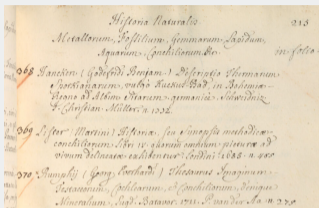 Historia Naturalis 215
Metallorum, Fossilium, Gemmarum, Lapidum,
Aquarum, Conchiliorum &c.
in folio
368 Hancken (Godefridi Benjam) Descriptio Thermarum
vulgo Kuckus Bad, in Bohemiæ
ad Albim sitarum. germanicè. Schweidniz
Christian Müller. a. 1722.
369 Lister (Martini) Historiæ, seu Synopsis methodicæ
conchyliorum Libri quorum omnium picturæ ad
vivum delineatæ exhibentur. Londini 1685
370, Rumphij (Georg Everhardi) Thesaurus Imaginum
Testaceorum, Cochlearum, & Conchiliorum, denique
Mineralium, Lugd. Batavor. 1711. P. vander Aa.